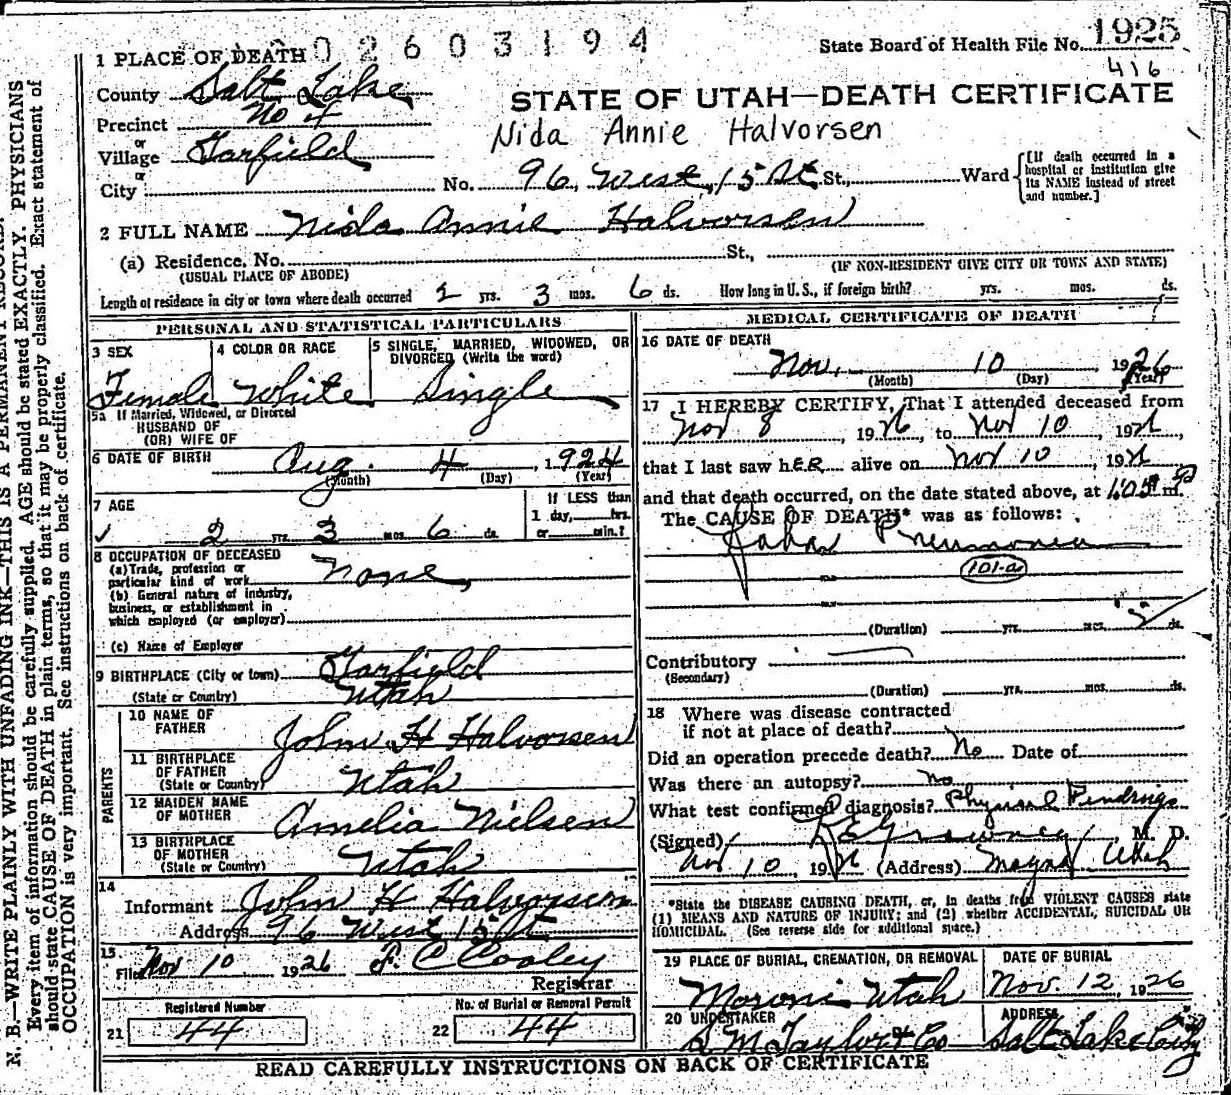 1 PLACE OF DEATH 02603194
State Board of Health File No. 1925
416
County Salt Lake
Precinct No 4
or
Village Garfield
or
City
STATE OF UTAH—DEATH CERTIFICATE
Nida Annie Halvorsen
No. 96 West 15 St St., Ward
[If death occurred in a hospital or institution give its NAME instead of street and number.]
2 FULL NAME Nida Annie Halvorsen
(a) Residence. No. St.,
(USUAL PLACE OF ABODE) (IF NON-RESIDENT GIVE CITY OR TOWN AND STATE)
Length of residence in city or town where death occurred 2 yrs. 3 mos. 6 ds. How long in U. S., if foreign birth? yrs. mos. ds.
PERSONAL AND STATISTICAL PARTICULARS
3 SEX
Female
4 COLOR OR RACE
White
5 SINGLE, MARRIED, WIDOWED, OR DIVORCED (Write the word)
Single
5a If Married, Widowed, or Divorced
HUSBAND OF
(OR) WIFE OF
6 DATE OF BIRTH Aug. 4, 1924
(Month) (Day) (Year)
7 AGE
2 yrs. 3 mos. 6 ds.
If LESS than
1 day, hrs.
or min.?
8 OCCUPATION OF DECEASED
(a) Trade, profession or
particular kind of work None
(b) General nature of industry,
business, or establishment in
which employed (or employer)
(c) Name of Employer
9 BIRTHPLACE (City or town) Garfield
(State or Country) Utah
PARENTS
10 NAME OF
FATHER John H Halvorsen
11 BIRTHPLACE
OF FATHER
(State or Country) Utah
12 MAIDEN NAME
OF MOTHER Amelia Nielsen
13 BIRTHPLACE
OF MOTHER
(State or Country) Utah
14
Informant John H Halvorsen
Address 96 West 15 St
15
Filed Nov 10 1926 F. C Cooley
Registrar
Registered Number
21 44
No. of Burial or Removal Permit
22 44
MEDICAL CERTIFICATE OF DEATH
16 DATE OF DEATH
Nov. 10 1926
(Month) (Day) (Year)
17 I HEREBY CERTIFY, That I attended deceased from
Nov 8, 1926, to Nov 10, 1926,
that I last saw hER alive on Nov 10, 1926
and that death occurred, on the date stated above, at m.
The CAUSE OF DEATH* was as follows:
Lobar Pneumonia
101-a
(Duration) yrs. mos. ds.
Contributory
(Secondary)
(Duration) yrs. mos. ds.
18 Where was disease contracted
if not at place of death?
Did an operation precede death? No Date of
Was there an autopsy? no
What test confirmed diagnosis? Physical Findings
(Signed) M. D.
Nov 10 1926 (Address) Magna Utah
*State the DISEASE CAUSING DEATH, or, in deaths from VIOLENT CAUSES state
(1) MEANS AND NATURE OF INJURY; and (2) whether ACCIDENTAL, SUICIDAL OR
HOMICIDAL. (See reverse side for additional space.)
19 PLACE OF BURIAL, CREMATION, OR REMOVAL
Moroni Utah
DATE OF BURIAL
Nov. 12, 1926
20 UNDERTAKER
S. M. Taylor & Co
ADDRESS
Salt Lake City
READ CAREFULLY INSTRUCTIONS ON BACK OF CERTIFICATE
N. B.—WRITE PLAINLY WITH UNFADING INK—THIS IS A PERMANENT RECORD.
Every item of information should be carefully supplied. AGE should be stated EXACTLY. PHYSICIANS
should state CAUSE OF DEATH in plain terms, so that it may be properly classified. Exact statement of
OCCUPATION is very important. See instructions on back of certificate.